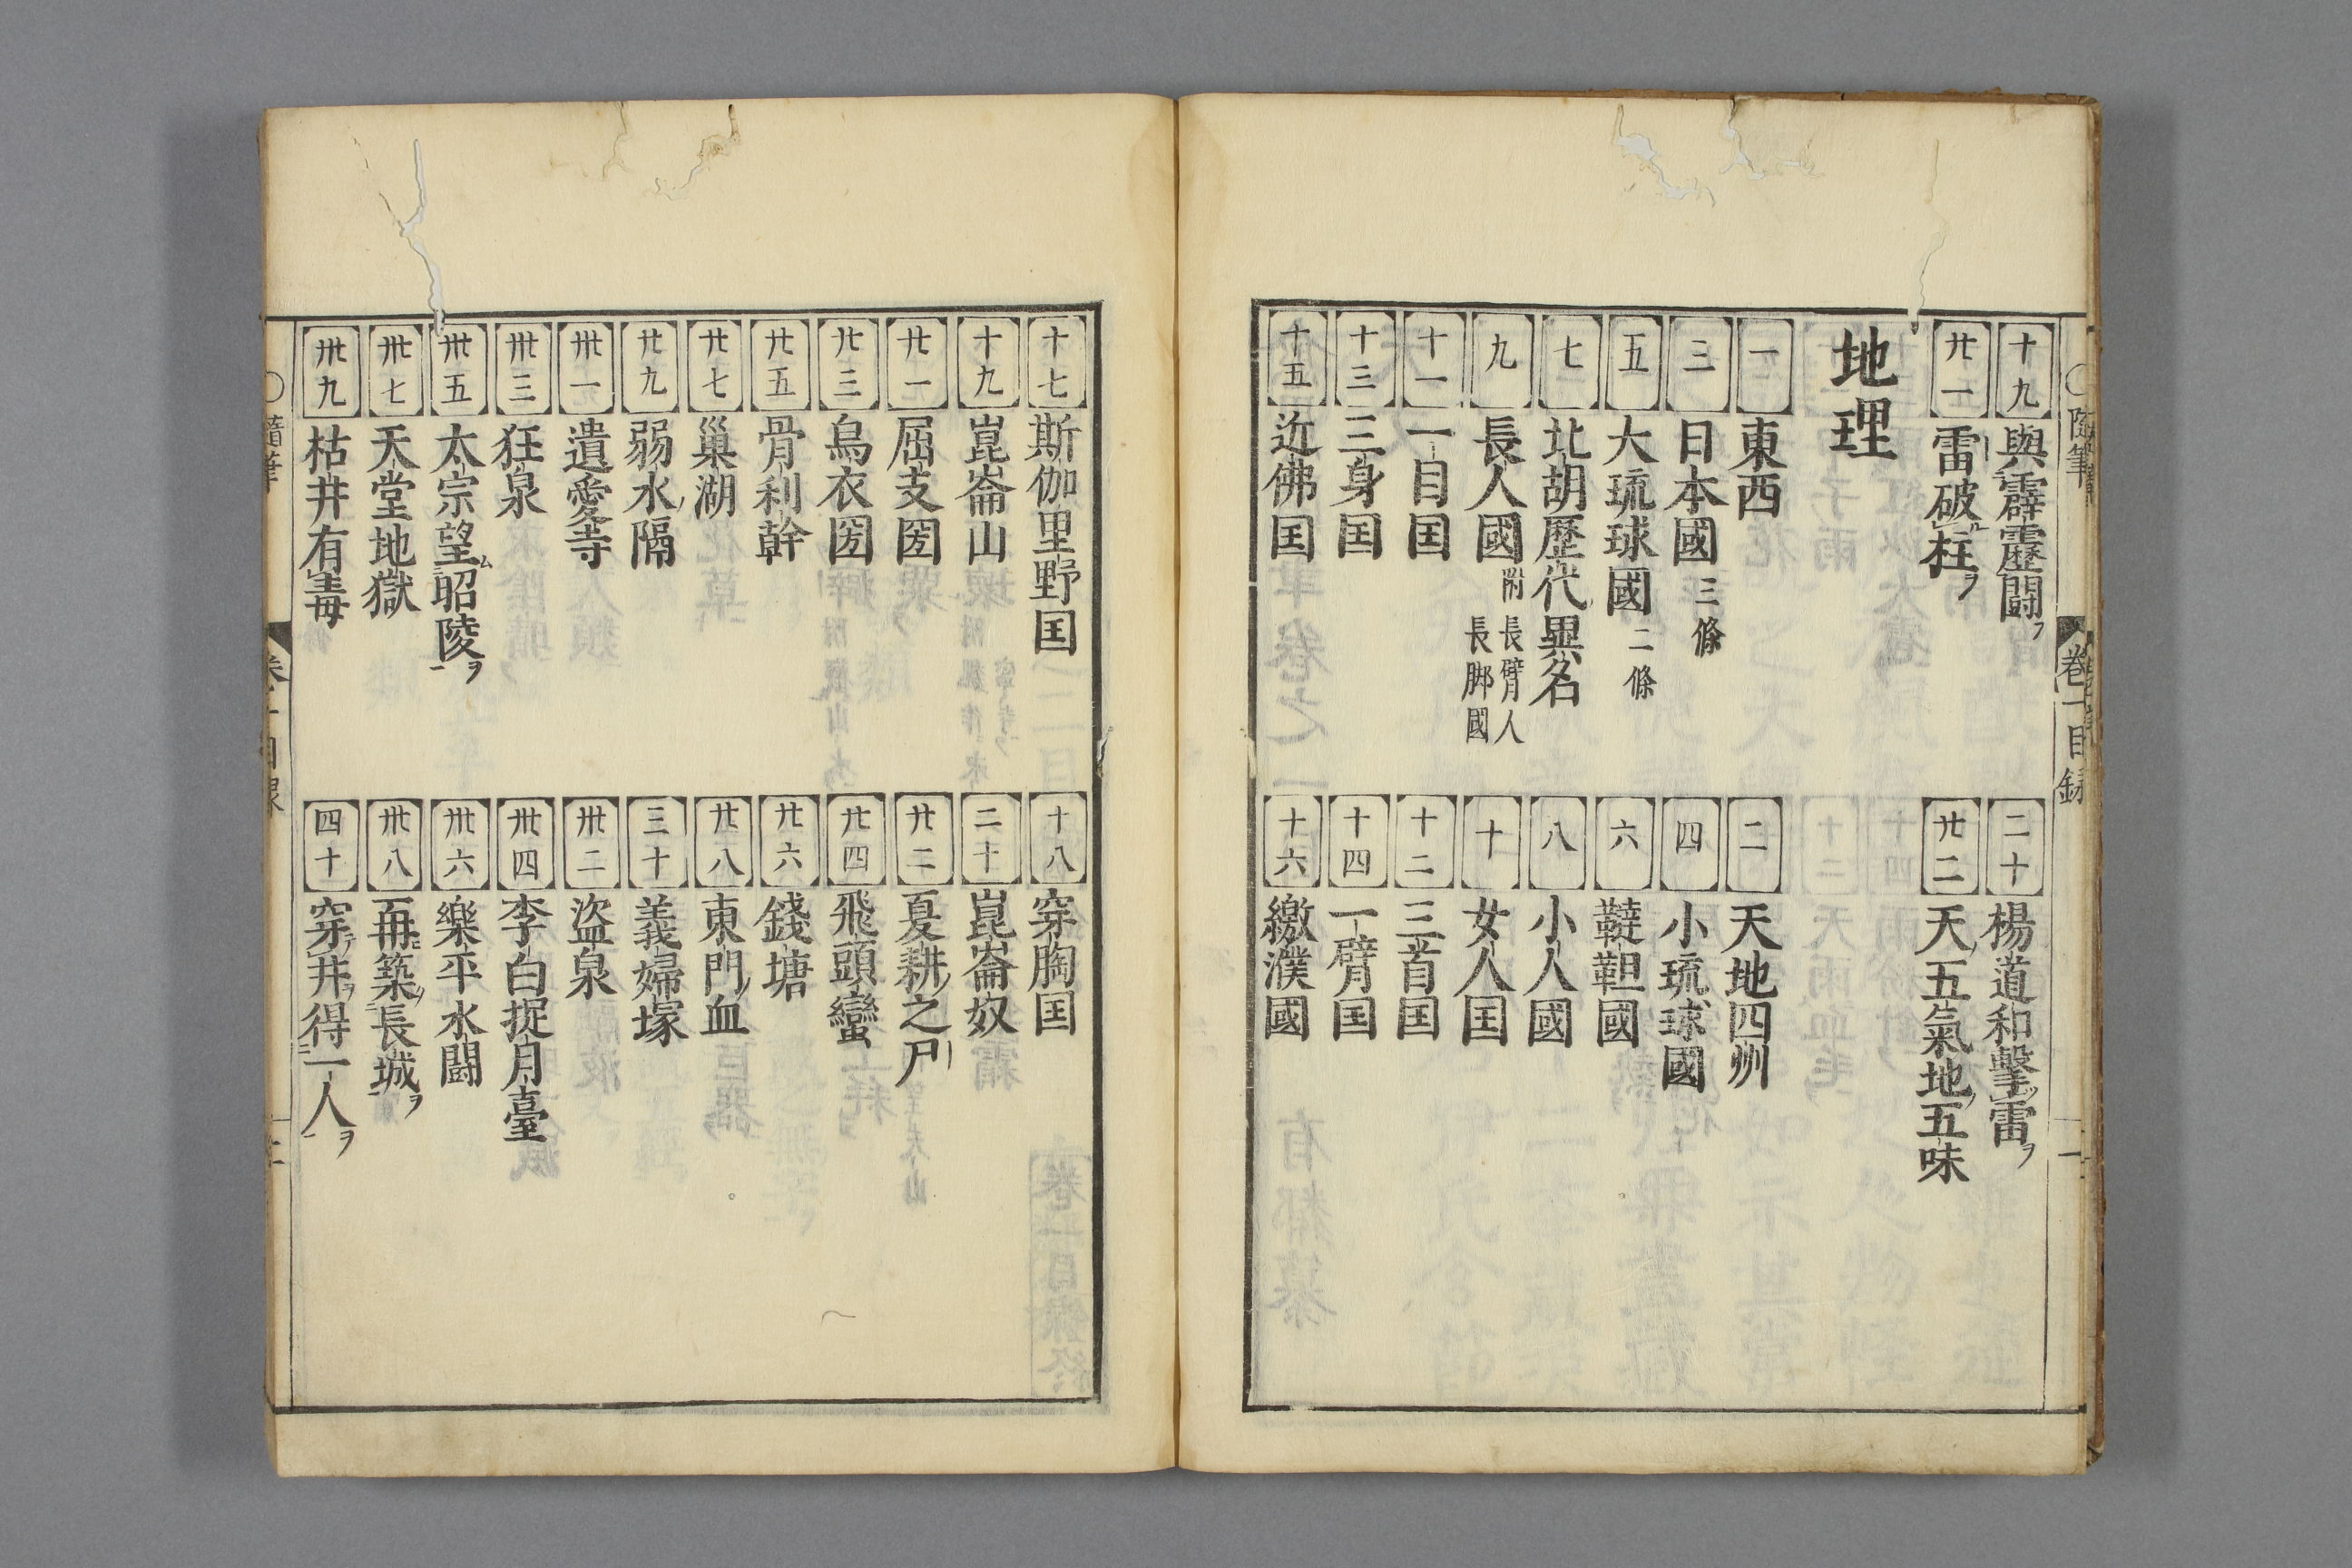 十九 與霹靂闘フ
二十 楊道和撃ツ雷ヲ
廿一 雷破ル柱ヲ
廿二 天ノ五氣地ノ五味
地理
一 東西
二 天地四州
三 日本國 三條
四 小琉球國
五 大琉球國 二條
六 韃靼國
七 北胡歴代ノ異名
八 小人國
九 長人國 附 長臂人 長脚國
十 女人囯
十一 一目囯
十二 三首囯
十三 三身囯
十四 一臂囯
十五 近佛囯
十六 繳濮國
○隨筆 卷一目録
十七 斯伽里野囯
十八 穿胸囯
十九 崑崙山
二十 崑崙奴
廿一 屈支圀
廿二 夏耕ノ之尸
廿三 烏衣圀
廿四 飛頭蠻
廿五 骨利幹
廿六 錢塘
廿七 巢湖
廿八 東門ノ血
廿九 弱水ノ隔
三十 義婦塚
卅一 遺愛寺
卅二 盜泉
卅三 狂泉
卅四 李白捉月臺
卅五 太宗望ム昭陵ヲ
卅六 樂平水闘
卅七 天堂地獄
卅八 再ヒ築ク長城ヲ
卅九 枯井有毒
四十 穿テ井ヲ得一人ヲ